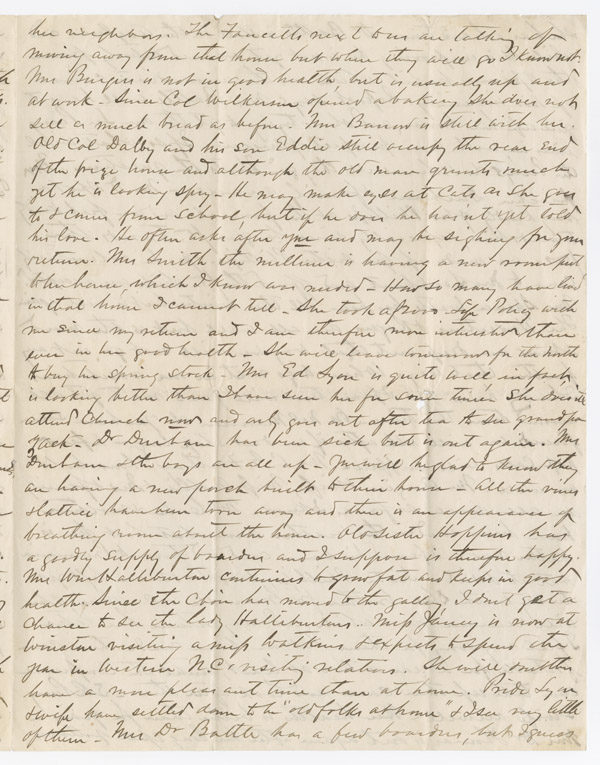 her neighbors. The Faucetts next to us are talking of
moving away from that house but where they will go I know not.
Mrs Burgess is not in good health, but is usually up and
at work - Since Col Wilkerson opened a bakery she does not
sell as much bread as before. Mrs Barrow is still with her.
Old Col Dalby and his son Eddie still occupy the rear end
of the house and although the old man grunts much
yet he is looking spry - He may make eyes at Cats as she goes
to & comes from School, but if he does he hasn't yet told
his love. He often asks after you and may be sighing for your
return. Mrs Smith the milliner is having a new room put
to her house, which I know was needed - How so many have lived
in that house I cannot tell - She took a Life Policy with
me since my return and I am therefore more interested than
ever in her good health - She will leave tomorrow for the north
to buy her spring stock - Mrs Ed Lyon is quite well, in fact,
is looking better than I have seen her for some time. She does
attend Church now and only goes out after tea to see grandpa
Zack - Dr Durham has been sick but is out again. Mrs
Durham & the boys are all up - You will be glad to know they
are having a new porch built to their house - All the vines
& lattice have been torn away and there is an appearance of
breathing room about the house. Old Sister Hoppins has
a goodly supply of boarders and I suppose is therefore happy.
Mrs Wm Halliburton continues to grow fat and keeps in good
health. Since the Choir has moved to the gallery I don't get a
chance to see the lady Halliburtons. Miss is now at
Winston visiting a Miss Watkins & expects to spend the
year in Western N.C. visiting relations. She will doubtless
have a more pleasant time than at home. Pride Lyon
& wife have settled down to the "old folks at home" & I see very little
of them - Mrs Dr Battle has a few boarders, but I guess